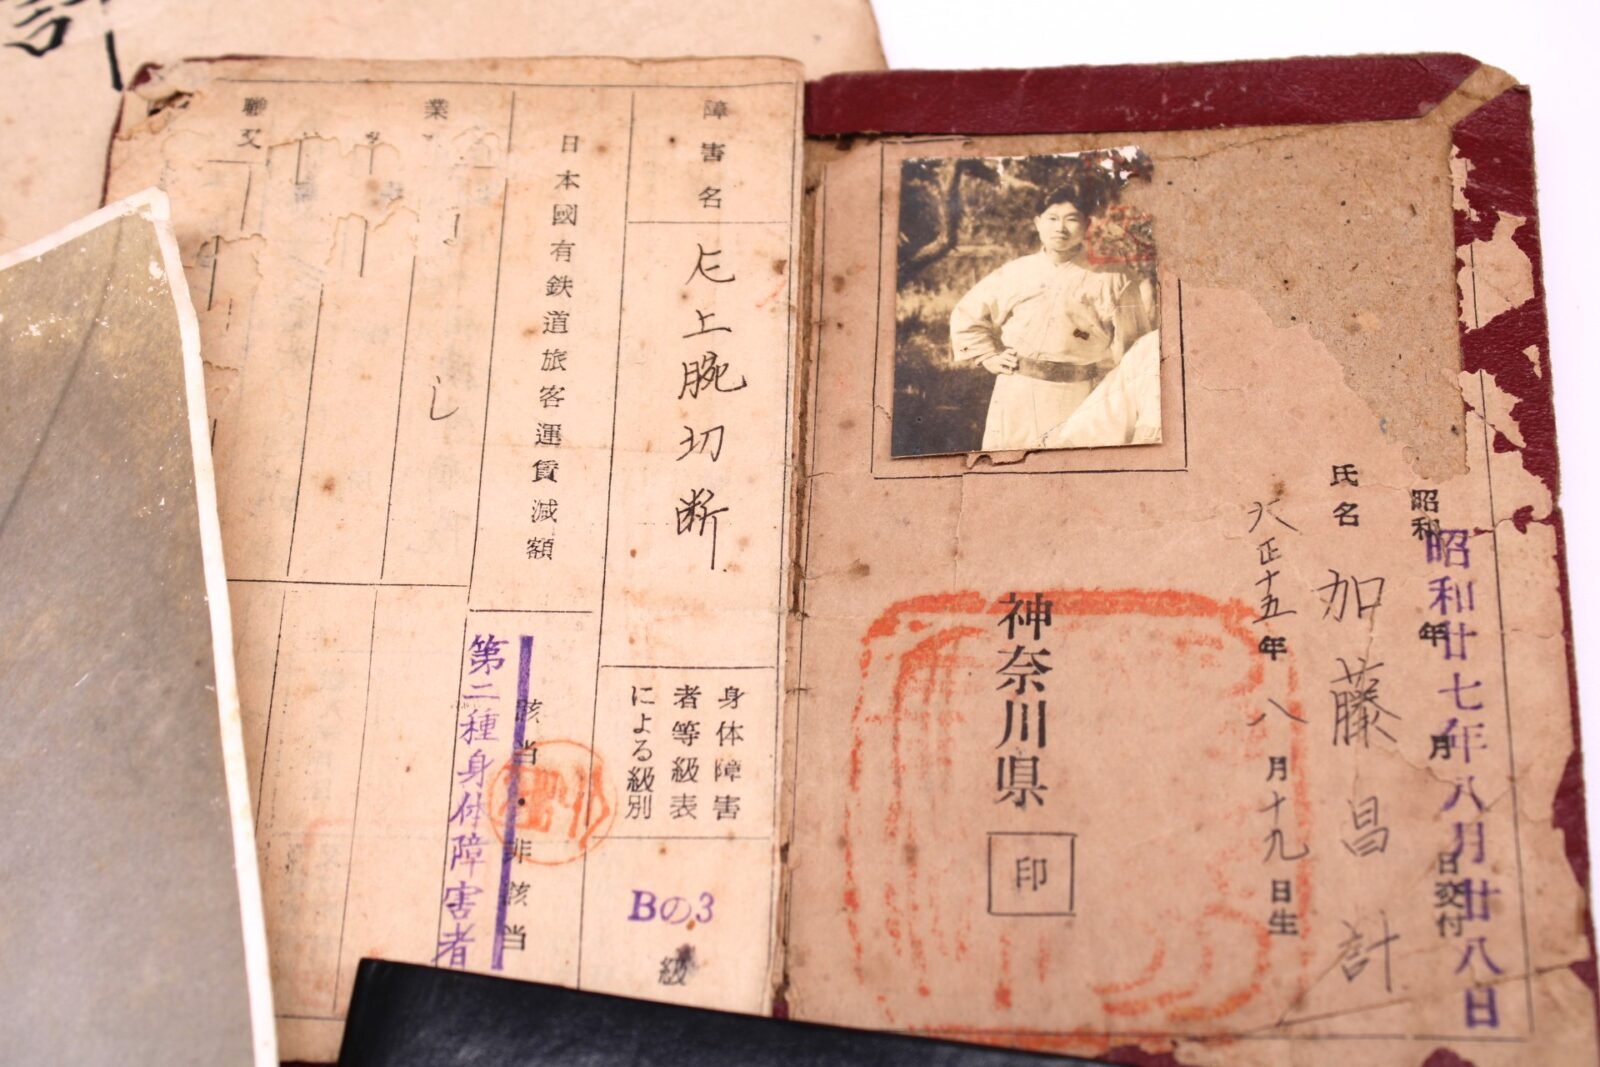 昭和 年 月 日交付
昭和廿七年八月廿八日
氏名 加藤昌計
大正十五年八月十九日生
神奈川県 印
障害名
左上腕切断
身体障害
者等級表
による級別
Bの3
級
日本國有鉄道旅客運賃減額
該当・非該当
第二種身体障害者
業
計